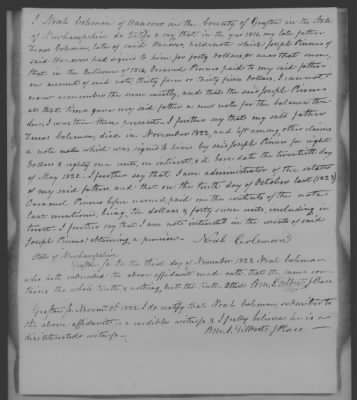 I Noah Coleman of Hanover in the County of Grafton in the State
of Newhampshire do testify & say that in the year 1816 my late father
Zenas Coleman, late of said Hanover, held a note which Joseph Pinneo of
said Hanover had signed to him for forty dollars, or near that sum,
that in the autumn of 1816 Pinneo paid to my said father
on account of said note, thirty four or thirty five Dollars. I cannot
now remember the sum exactly, and that the said Joseph Pinneo
at that time gave my said father a new note for the balance then
due; I was then there present. I further say that my said father
Zenas Coleman, died in November 1822, and left among other claims
a note which was signed by said Joseph Pinneo for eight
Dollars & eighty one cents, on interest, & bore date the twentieth day
of May 1822. I further say that I am administrator of the estate
of my said father and that on the tenth day of October last (1823)
Pinneo before named, paid me the contents of the note
last mentioned, being, ten dollars & forty seven cents, including in
terest. I further say that I am not interested in the event of said
Joseph Pinneo obtaining a pension. Noah Coleman
State of Newhampshire
Grafton ss. On the third day of November 1823 Noah Coleman
who hath subscribed the above affidavit made oath that the same con
tains the whole truth, & nothing but the truth. Attest Benj. J. Gilbert J. Peace
Grafton ss Novem. 1823. I do certify that Noah Coleman, subscriber to
the above affidavit, is a credible witness, & I fully believe he is a
disinterested witness. Benj. J. Gilbert J. Peace